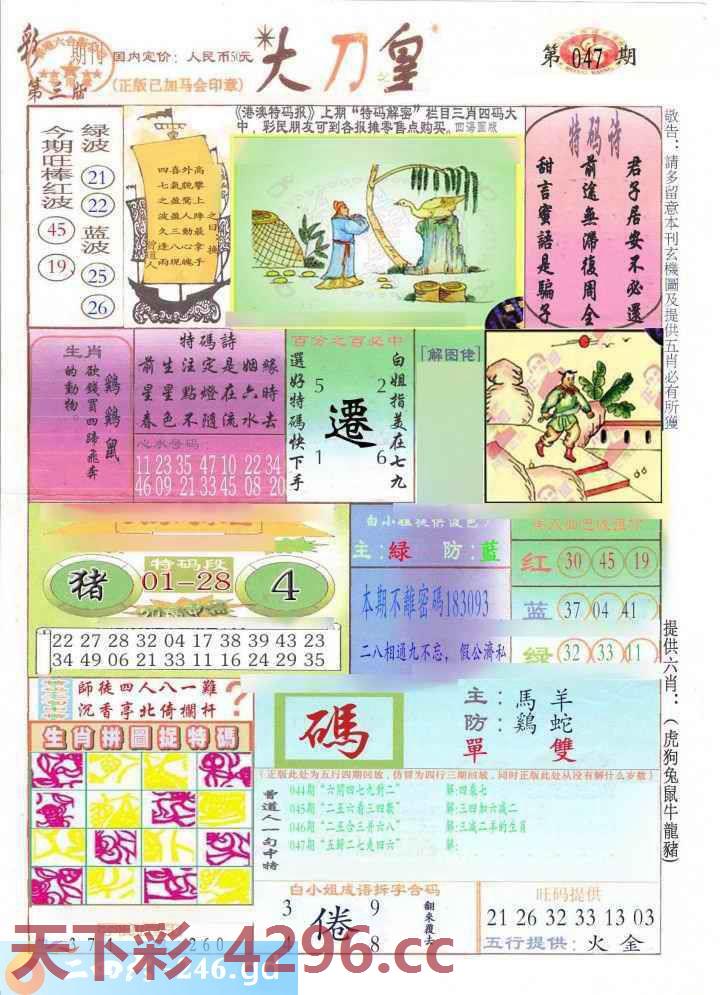 彩 期刊
第三版
国内定价：人民币50元
(正版已加马会印章)
*大刀皇
第047期
《港澳特码报》上期“特码解密”栏目三肖四码大
中，彩民朋友可到各报摊零售点购买。四海圖版
今期旺棒红波
45
19
绿波
21
22
蓝波
25
26
曾道人
特码诗
君子居安不必還
前途無滯復周全
甜言蜜語是騙子
敬告：請多留意本刊玄機圖及提供五肖必有所獲
生肖
欲錢買四蹄飛奔
的動物。
鷄鷄鼠
特碼詩
前生注定是姻緣
星星點燈在六時
春色不隨流水去
心水号码
11 23 35 47 10 22 34
46 09 21 33 45 08 20
百分之百必中
選好特碼快下手
5 2
遷
1 6
白姐指美在七九
[解图佬]
猪
特码段
01-28
4
22 27 28 32 04 17 38 39 43 23
34 49 06 21 33 11 16 24 29 35
白小姐提供波色
主:绿 防:蓝
本期不離密碼183093
二八相通九不忘，假公濟私
红 30 45 19
蓝 37 04 41
绿 32 33 11
提供六肖：（虎狗兔鼠牛龍豬）
師徒四人八一難
沉香亭北倚欄杆
?
生肖拼圖捉特碼
碼
主：馬羊
防：鷄蛇
單 雙
(正版此处为五行四期回放，仿冒为四行三期回放，同时正版此处从没有解什么岁数)
曾道人一句中特
044期“六開四七九對二” 解:四乘七
045期“二五六看三四數” 解:三四加六减二
046期“二五合三并六八” 解:三减二羊的生肖
047期“五歸二七是四六” 解:
白小姐成语拆字合码
3 9
倦
8
翻來覆去
旺码提供
21 26 32 33 13 03
五行提供：火 金
374 260
天下彩 4296.cc
二四六 246.gd